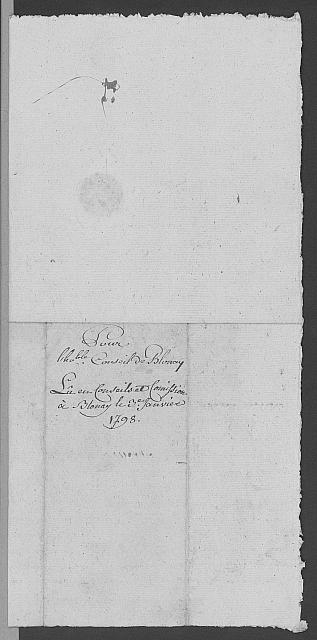 Pour
l'ho.ble Conseil de Blonay
Lû en Conseils et Comission
à Blonay le 3.e Janvier
1798.